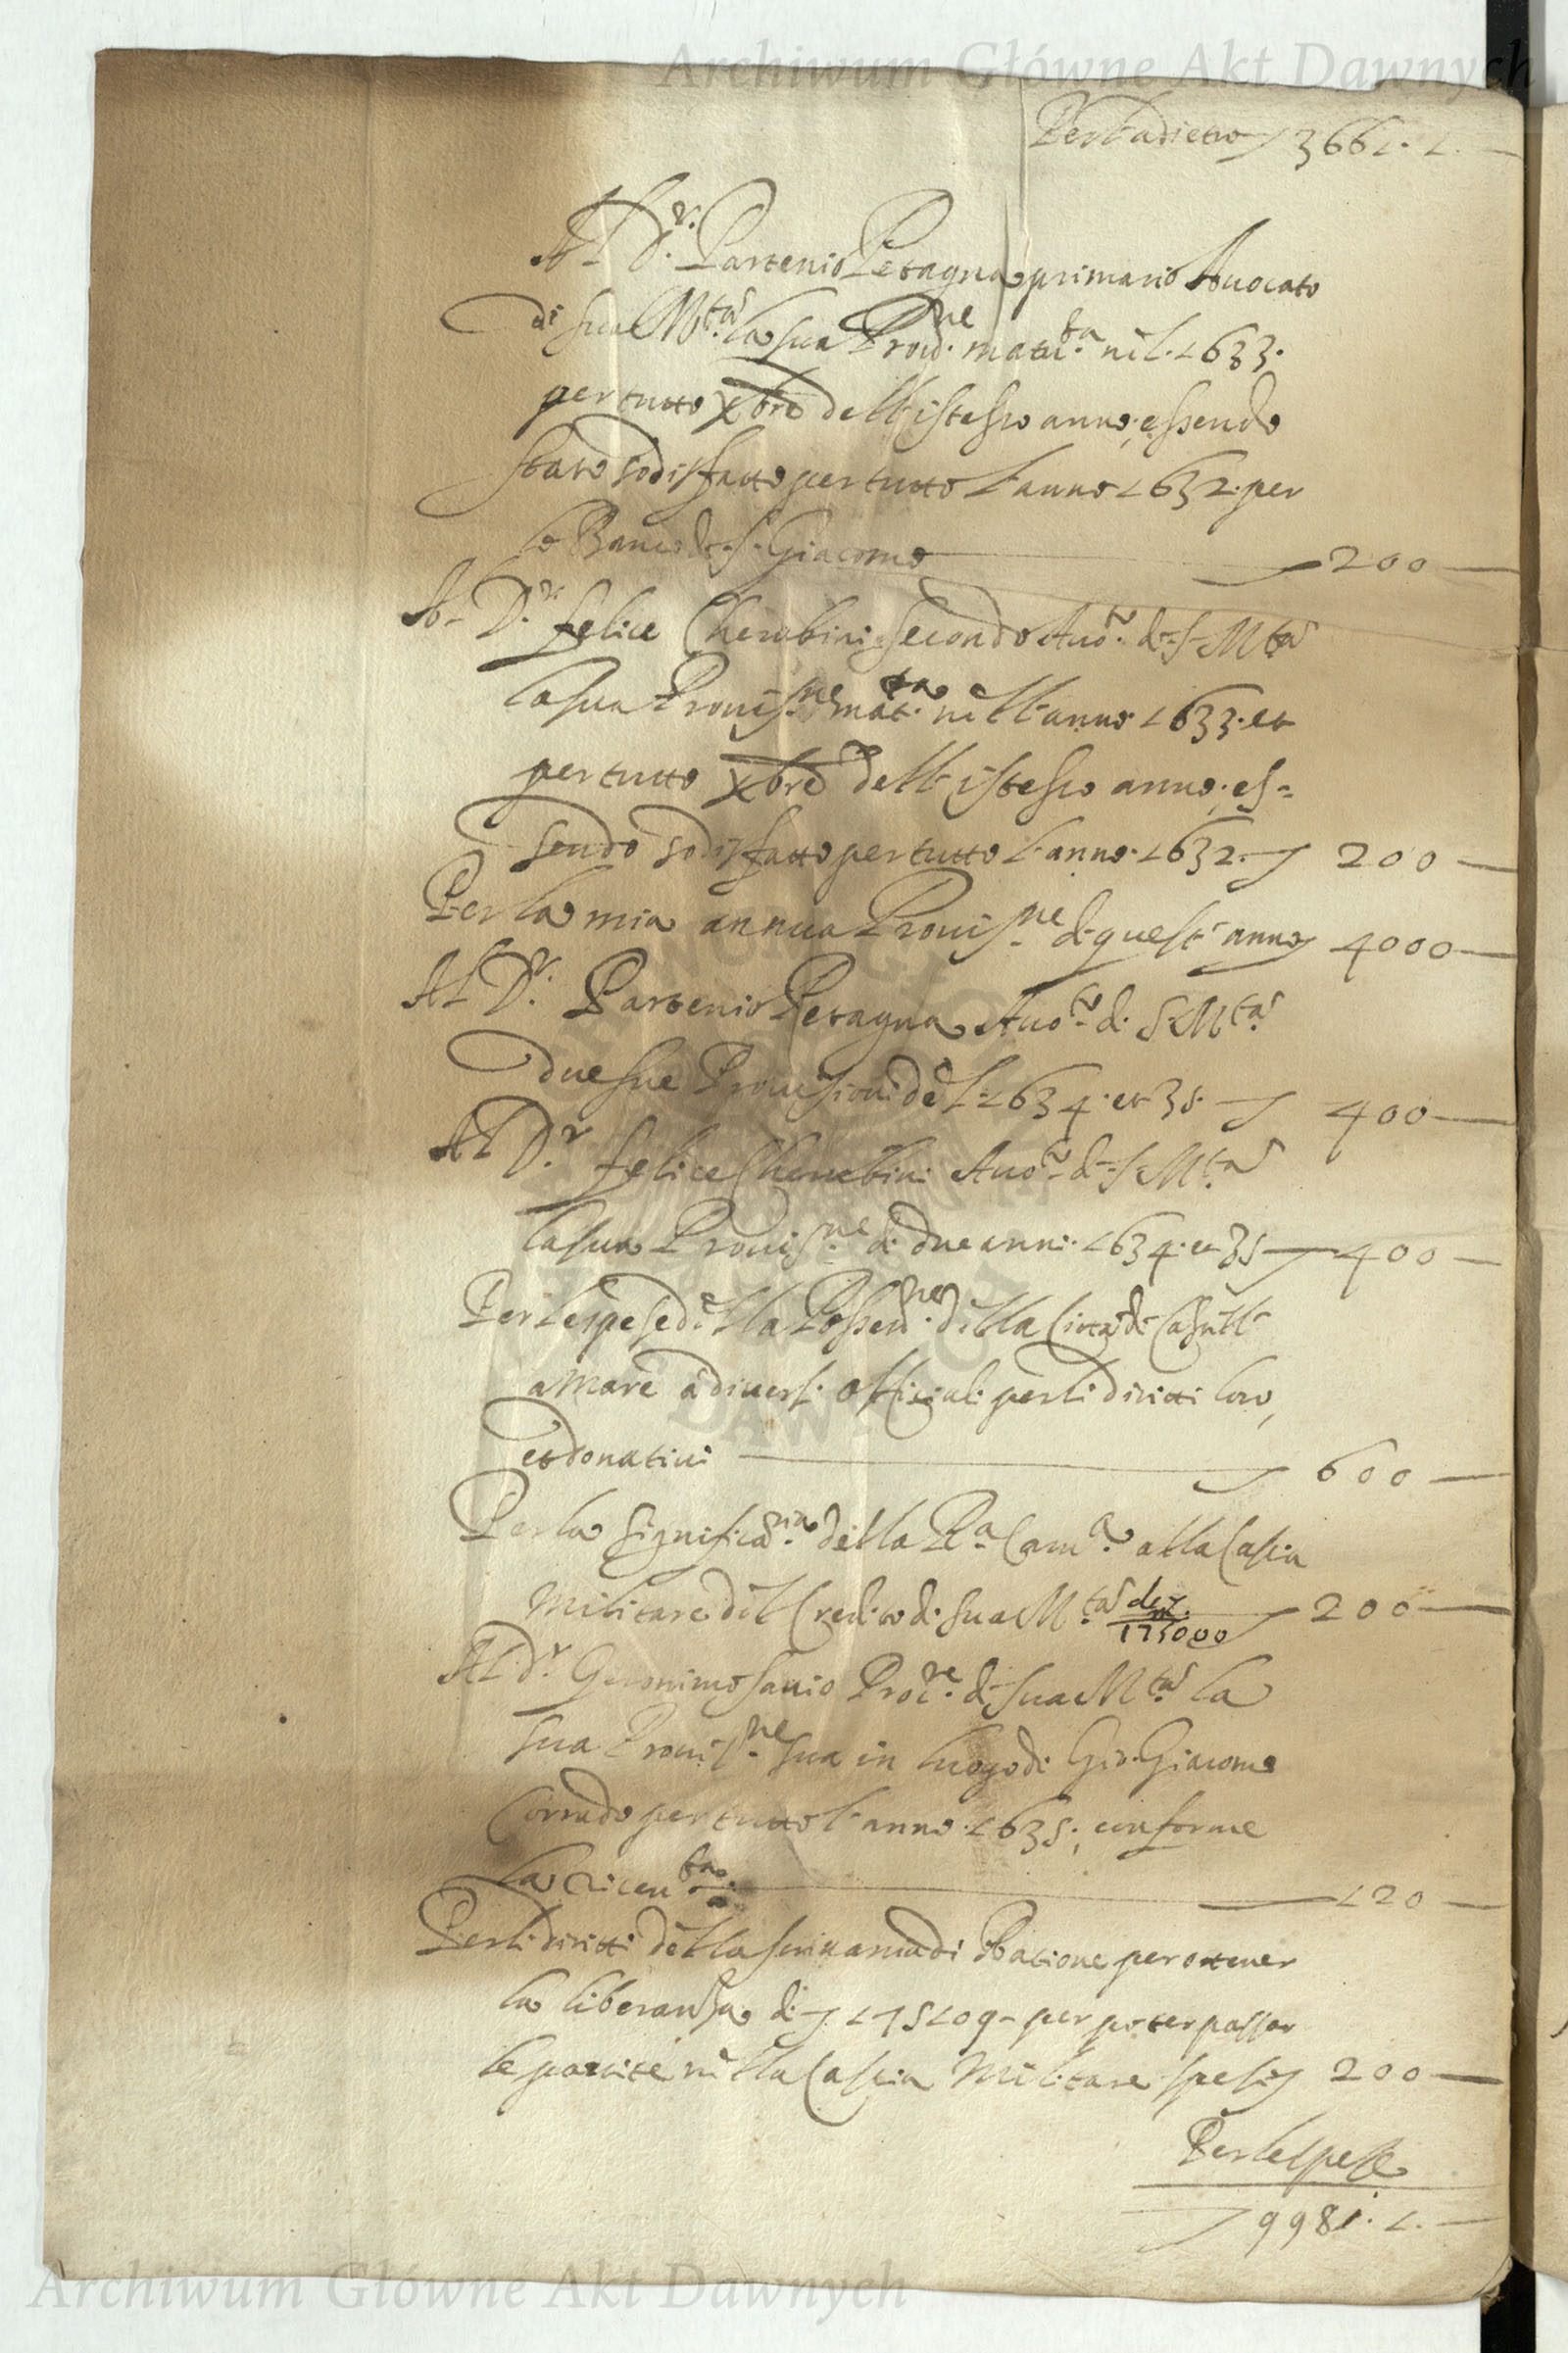 Archiwum Główne Akt Dawnych
Per l'adietro 3661. 1.
Al D.r Partenio Petagna primario Auocato
di sua M.tà la sua Prou.ne matu.ta nel 1633.
per tutto Xbre dell'istesso anno, essendo
stato sodisfatto per tutto l'anno 1632. per
lo Banco di S. Giacomo 200
Al D.r felice Cherubini secondo Auo.to di S. M.tà
la sua Prouis.ne mat.ta nell'anno 1633. et
per tutto Xbre dell'istesso anno, es=
sendo sodisfatto per tutto l'anno 1632. 200
Per la mia annua Prouis.ne di quest'anno 4000
Al D.r Partenio Petagna Auo.to di S. M.tà
due sue Prouisioni del 1634. et 35. 400
Al D.r felice Cherubini Auo.to di S. M.tà
la sua Prouis.ne di due anni 1634. et 35 400
Per le spese della Possess.ne della Città di Castell'
a mare à diuersi officiali per li diritti loro,
et donatiui 600
Per la significa.ria della R.a Cam.a alla Cascia
Militare del Credito di sua M.tà de 175000 200
Al d.r Geronimo sauio Proc.re di sua M.tà la
sua Prouis.ne sua in luogo di Gio. Giacomo
Corrado per tutto l'anno 1635, conforme
la riceu.ta 120
Per li diritti della scriuania di Ratione per ottener
la liberanza di 175109 per poter passar
le partite nella Cascia Militare spesi 200
Per le spese
9981. 1.
Archiwum Główne Akt Dawnych